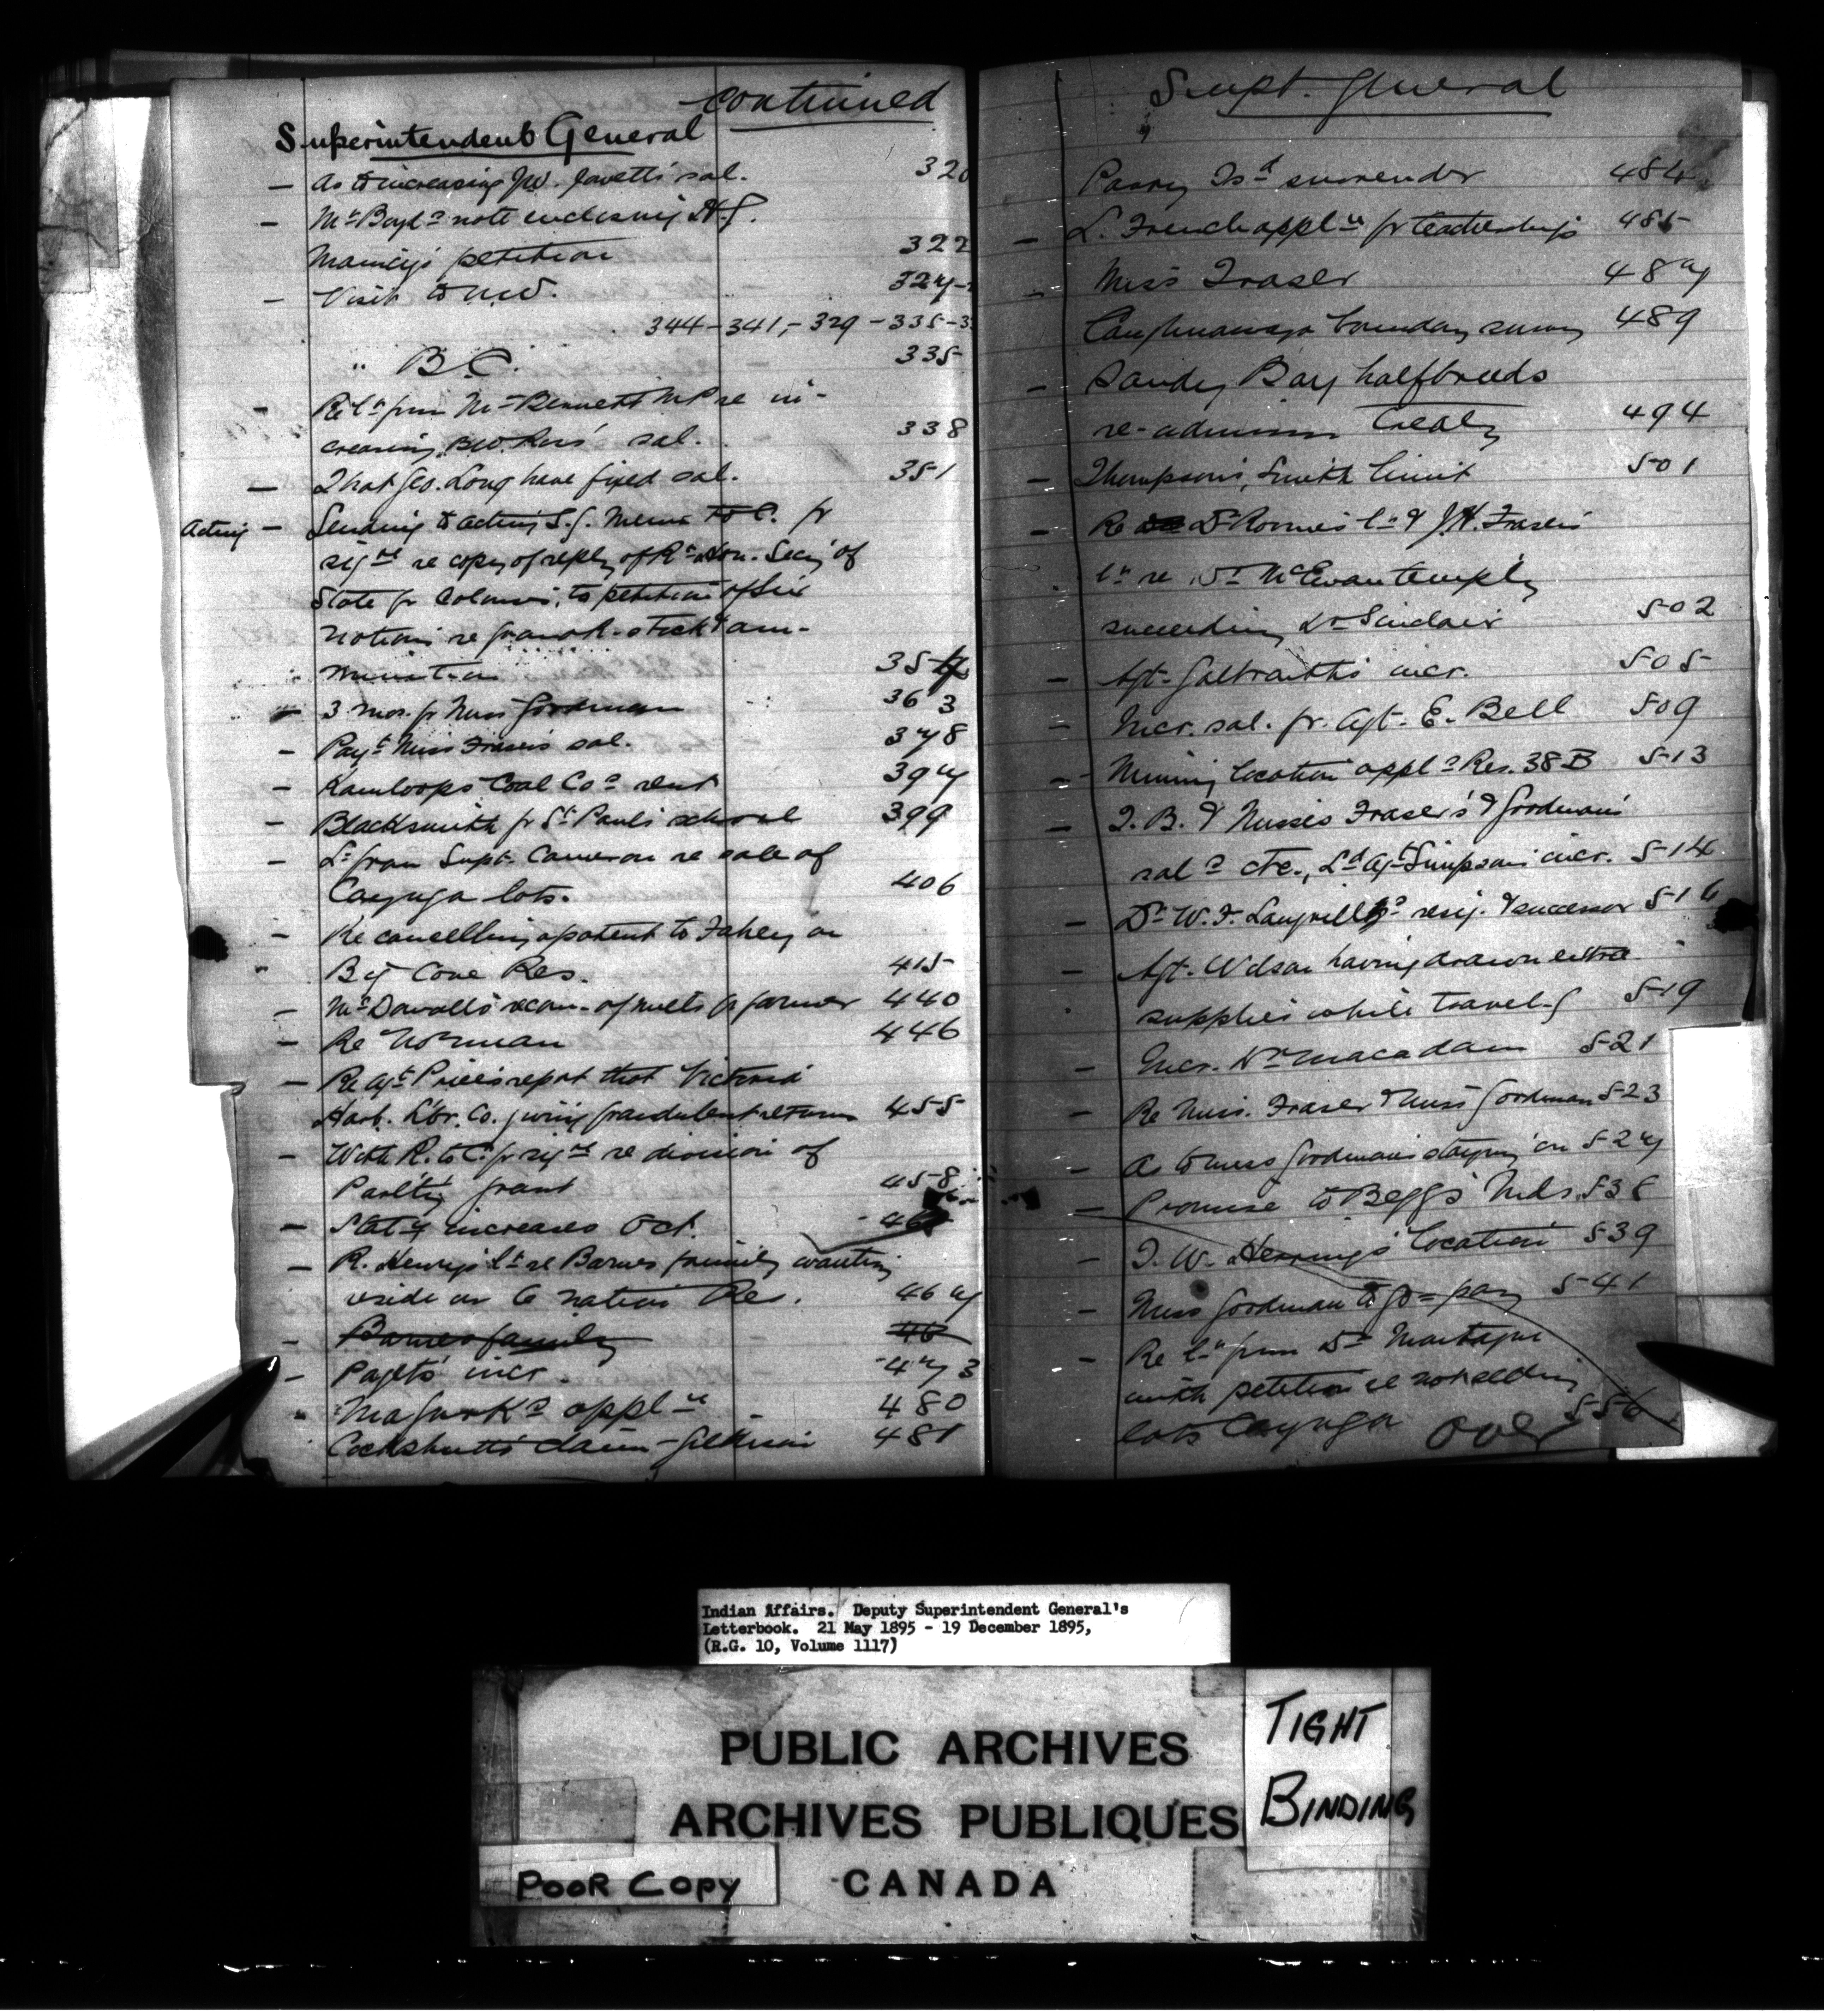 continued
Superintendent General
— As to increasing J.W. Jowett's sal. 320
— Mr Boyd's note enclosing H.G.
Manix's petition 322
— Visit to N.W. 327
344-341,-329-335-3
" B.C. 335
— Re lr from Mr Bennett MP re in-
creasing sal. 338
— That Geo. Long have fixed sal. 351
Acting — Sending to acting S.G. Memo to C. for
sigre re copy of reply of Rt Hon. Secy of
State for Colonies, to petition of Six
Nations re grant-stock & am-
munition 354
— 3 mos. for Miss Goodman 363
— Payt Miss Fraser's sal. 378
— Kamloops Coal Co's rent 397
— Blacksmith for St Paul's school 399
— Lr from Supt. Cameron re sale of
Cayuga lots. 406
— Re cancelling a patent to Fahey on
Big Cove Res. 415
— McDowall's recom. of for farmer 440
— Re Norman 446
— Re Agt Price's report that Victoria
Harb. L'br. Co. giving fraudulent returns 455
— With R. to C. for sigre re division of
grant 458
— Staty increases Oct.
— R. Henry's lr re Barnes family wanting
reside on 6 nation Re. 467
— Barnes family 46
— Paget's incr. 473
" appln 480
Cockshutt's claim - Gilkison 481
Supt. General
Parry Isd surrender 484
— L. French appln for teachership 485
— Miss Fraser 487
Caughnawaga boundary survey 489
— Sandy Bay halfbreeds
re-admission Treaty 494
— Thompson's, Smith limit 501
— Re Dr Roome's lr & J.H. Fraser's
lr re Dr McEwan temply
succeeding Dr Sinclair 502
— Agt. Galbraith's incr. 505
— Incr. sal. fr. Agt. E. Bell 509
— Mining location appls Res. 38 B 513
— T.B. & Misses Fraser's & Goodman's
sals etc., Ld Agt Simpson's incr. 514
— Dr W.F. Langrill's resig. & successor 516
— Agt. Wdsan having drawn extra
supplies while travel-g 519
— Incr. Dr Macadam 521
— Re Miss. Fraser & Miss Goodman 523
— As to Miss Goodman's staying on 527
— Promise to Begg's Mds. 538
— T.W. Herring's location 539
— Miss Goodman to go = pay 541
— Re lr from Dr Montague
with petition re not selling
lots Cayuga 556
over
Indian Affairs. Deputy Superintendent General's
Letterbook. 21 May 1895 - 19 December 1895,
(R.G. 10, Volume 1117)
PUBLIC ARCHIVES
ARCHIVES PUBLIQUES
CANADA
TIGHT
BINDING
POOR COPY